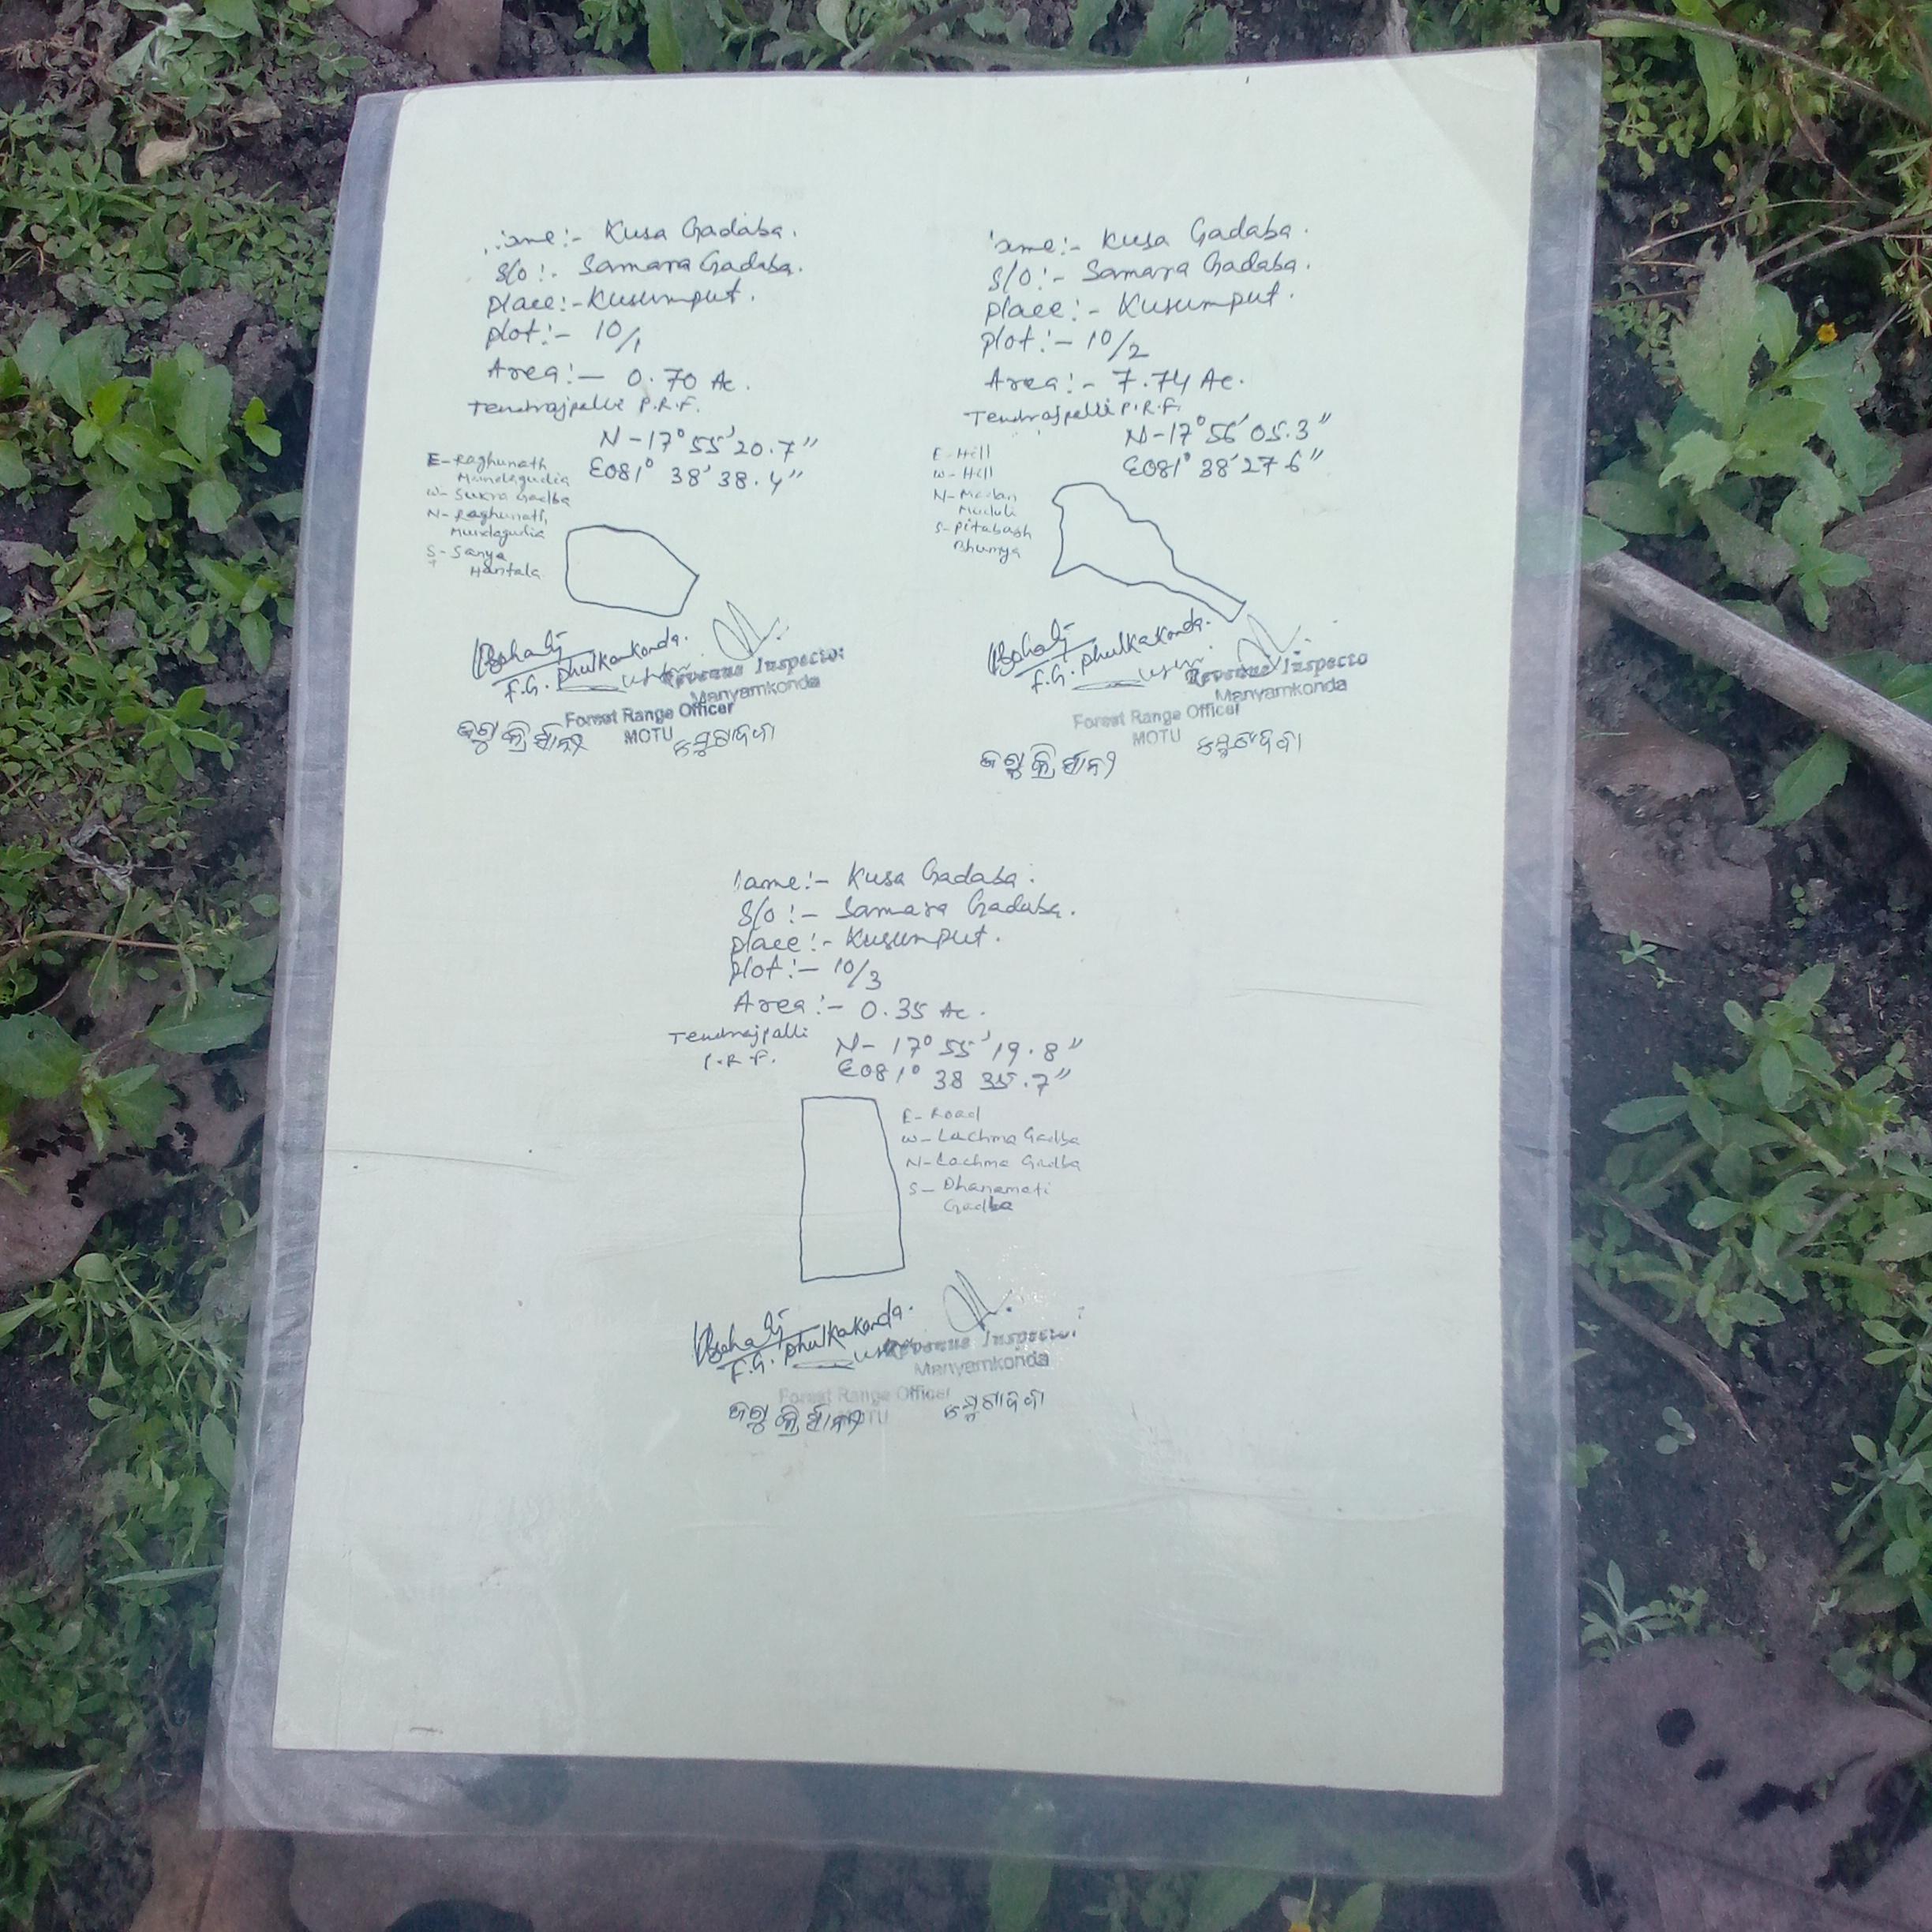 ame:- Kusa Gadaba.
S/o:- Samara Gadaba.
place:- Kusumput.
plot:- 10/1
Area:- 0.70 Ac.
Tendrajpalli P.R.F.
N-17° 55' 20.7"
E081° 38' 38.4"
E- Raghunath
Mundagudia
W- Sukra Gadba
N- Raghunath
Mundagudia
S- Sanya
Hantala
F.G. Phulkakonda.
Revenue Inspector
Manyamkonda
Forest Range Officer
MOTU
ame:- Kusa Gadaba.
S/o:- Samara Gadaba.
place:- Kusumput.
plot:- 10/2
Area:- 7.74 Ac.
Tendrajpalli P.R.F.
N-17° 56' 05.3"
E081° 38' 27.6"
E- Hill
W- Hill
N- Madan
Muduli
S- Pitabash
Bhumya
F.G. Phulkakonda.
Revenue Inspecto
Manyamkonda
Forest Range Officer
MOTU
ame:- Kusa Gadaba.
S/o:- Samara Gadaba.
place:- Kusumput.
plot:- 10/3
Area:- 0.35 Ac.
Tendrajpalli
P.R.F.
N- 17° 55' 19.8"
E081° 38 35.7"
E- Road
W- Lachma Gadba
N- Lachma Gadba
S- Dhanamati
Gadba
F.G. Phulkakonda.
Revenue Inspector
Manyamkonda
Forest Range Officer
MOTU